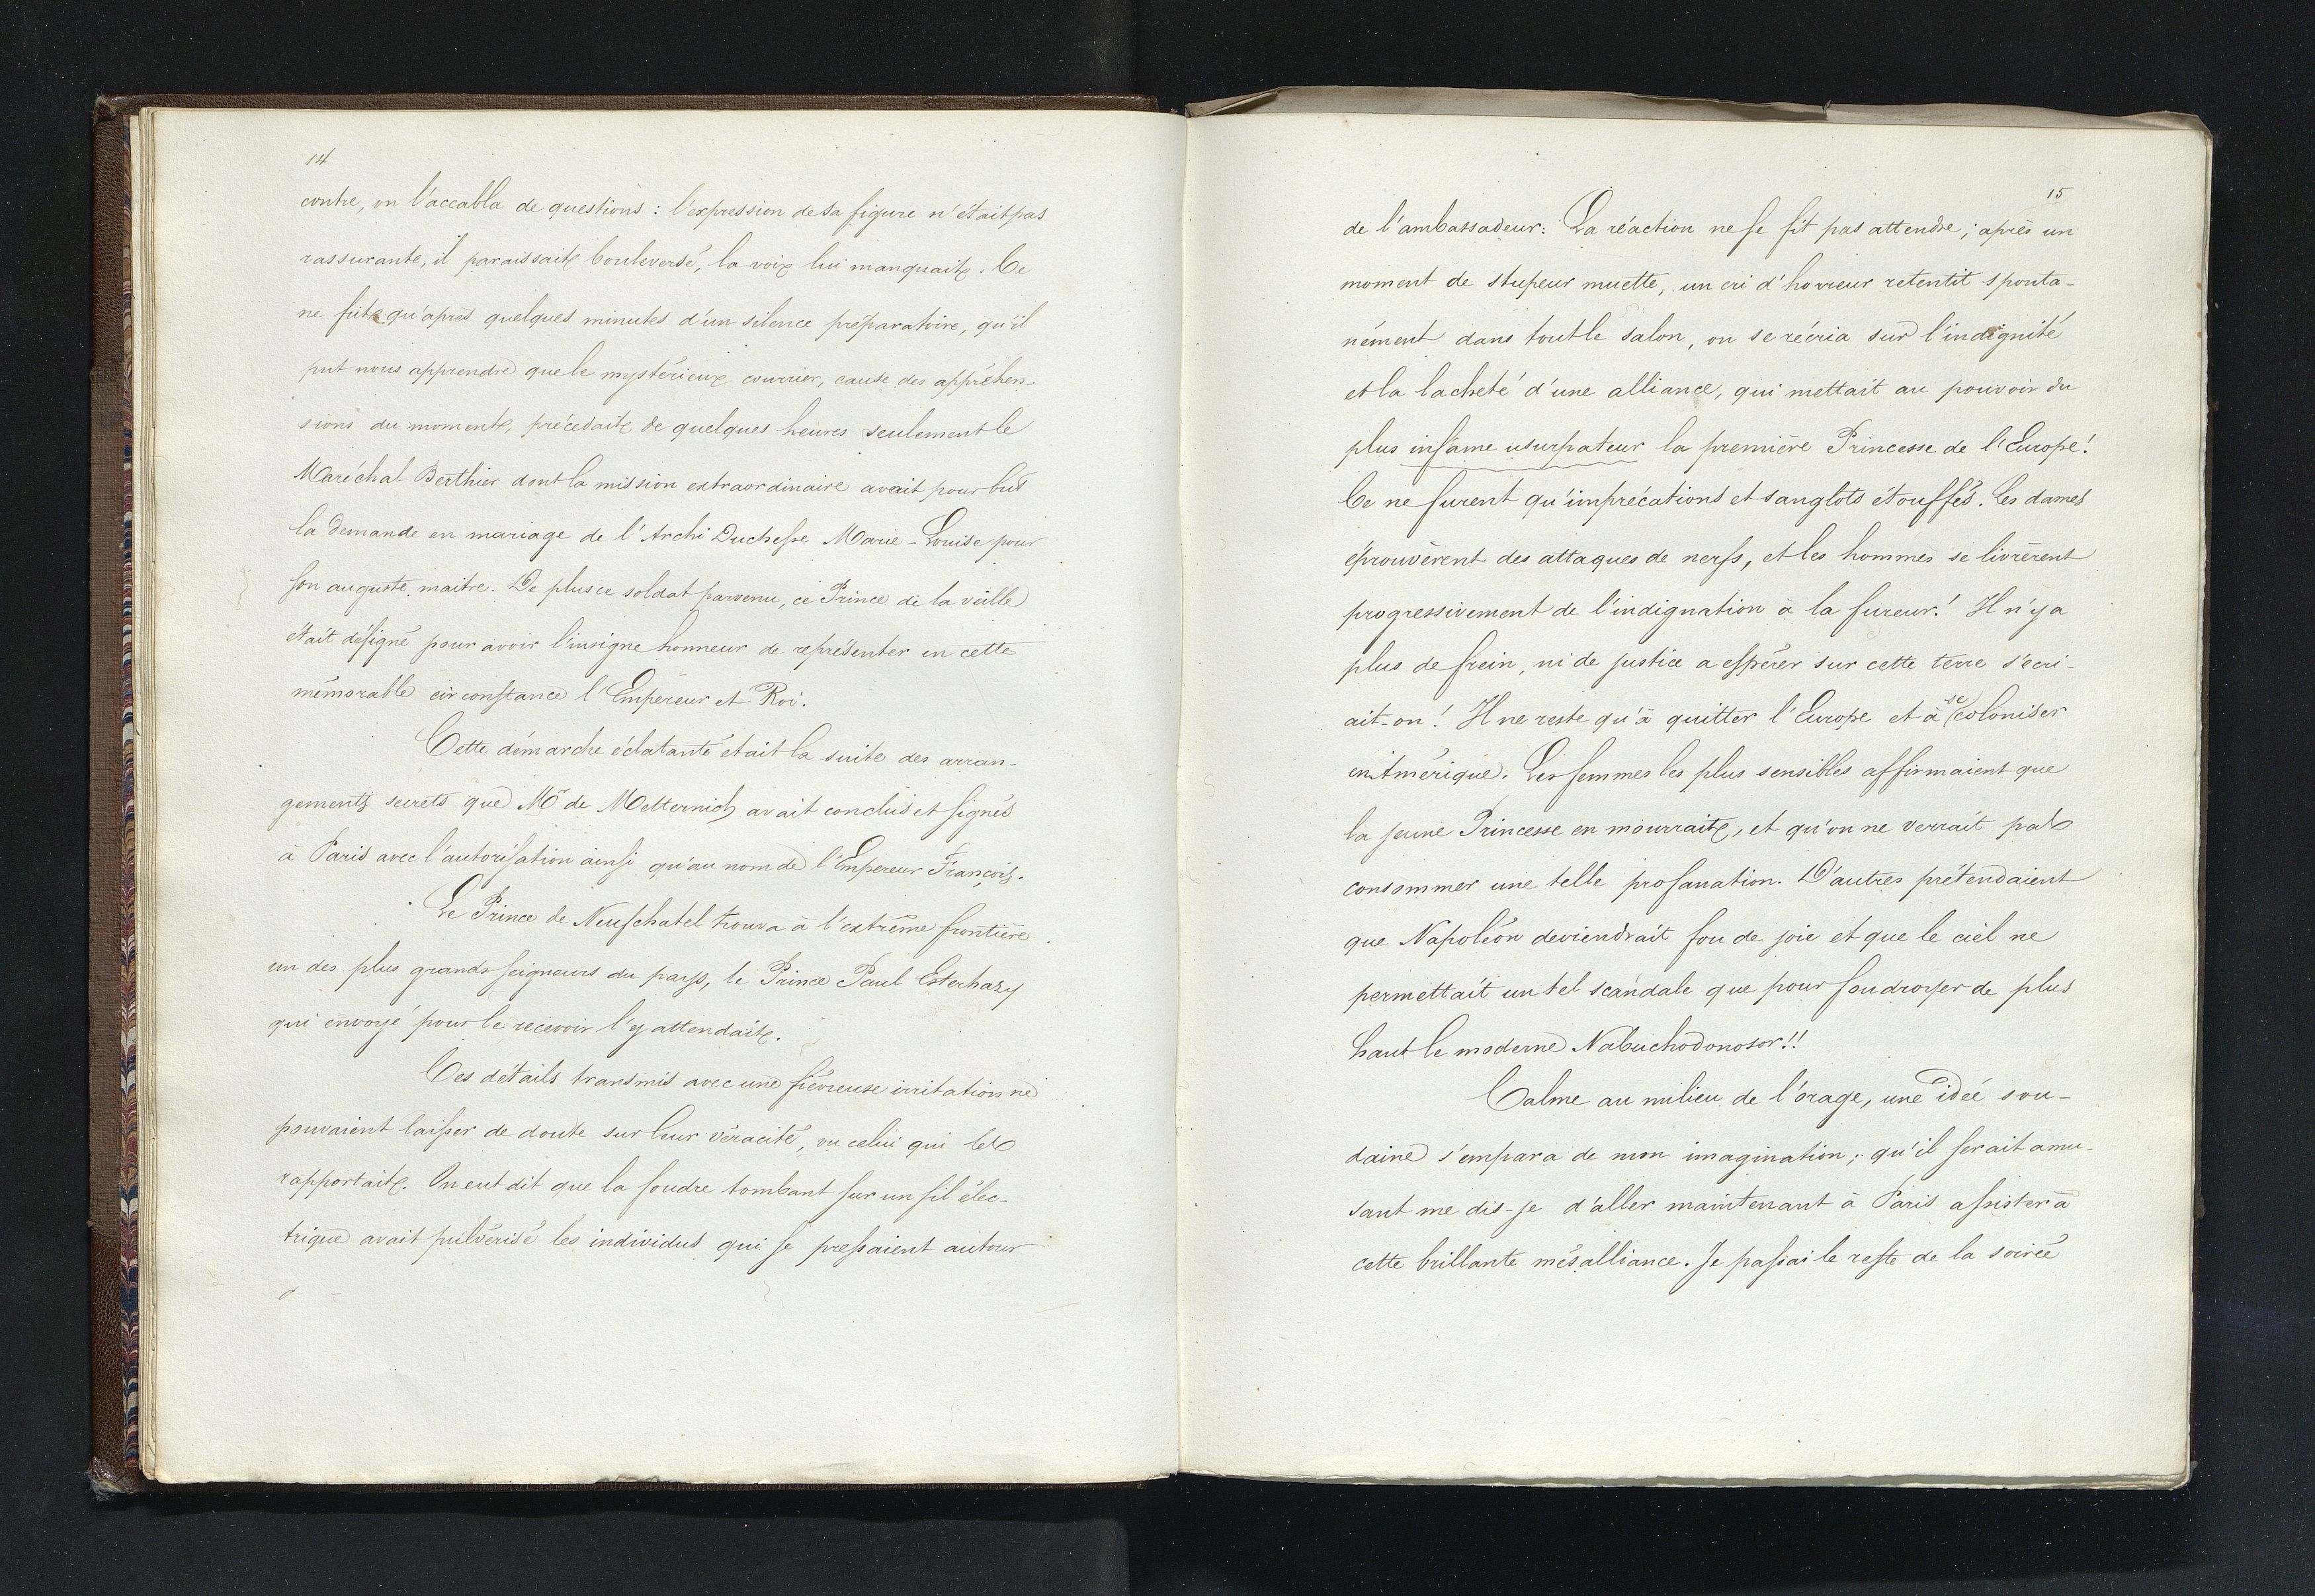 14
contre, on l'accabla de questions : l'expression de sa figure n'était pas
rassurante, il paraissait bouleversé, la voix lui manquait. Ce
ne fut qu'après quelques minutes d'un silence préparatoire, qu'il
put nous apprendre que le mystérieux courrier, cause des appréhen-
sions du moment, précédait de quelques heures seulement le
Maréchal Berthier dont la mission extraordinaire avait pour but
la demande en mariage de l'Archi Duchesse Marie-Louise pour
son auguste maitre. De plus ce soldat parvenu, ce Prince de la veille
était désigné pour avoir l'insigne honneur de représenter en cette
mémorable circonstance l'Empereur et Roi.
Cette démarche éclatante était la suite des arran-
gements secrets que Mr de Metternich avait conclus et signés
à Paris avec l'autorisation ainsi qu'au nom de l'Empereur François.
Le Prince de Neufchatel trouva à l'extrême frontière
un des plus grands seigneurs du pays, le Prince Paul Esterhazy
qui envoyé pour le recevoir l'y attendait.
Ces détails transmis avec une fiévreuse irritation ne
pouvaient laisser de doute sur leur véracité, vu celui qui les
rapportait. On eut dit que la foudre tombant sur un fil élec-
trique avait pulvérisé les individus qui se pressaient autour
15
de l'ambassadeur: La réaction ne se fit pas attendre ; après un
moment de stupeur muette, un cri d'horreur retentit sponta-
nément dans tout le salon, on se récria sur l'indignité
et la lacheté d'une alliance, qui mettait au pouvoir du
plus infâme usurpateur la première Princesse de l'Europe!
Ce ne furent qu'imprécations et sanglots étouffés. Les dames
éprouvèrent des attaques de nerfs, et les hommes se livrèrent
progressivement de l'indignation à la fureur! Il n'y a
plus de frein, ni de justice a espérer sur cette terre s'ecri-
ait-on! Il ne reste qu'à quitter l'Europe et à se coloniser
en Amérique. Les femmes les plus sensibles affirmaient que
la jeune Princesse en mourrait, et qu'on ne verrait pas
consommer une telle profanation. D'autres prétendaient
que Napoléon deviendrait fou de joie et que le ciel ne
permettait un tel scandale que pour foudroyer de plus
haut le moderne Nabuchodonosor!!
Calme au milieu de l'orage, une idée sou-
daine s'empara de mon imagination ; qu'il serait amu-
sant me dis-je d'aller maintenant à Paris assister à
cette brillante mésalliance. Je passai le reste de la soirée